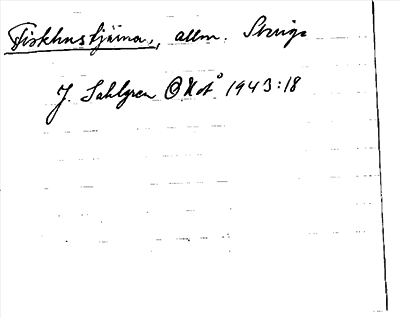 Fiskhustjärna, allm. Sverige
J. Sahlgren @ NoB 1943:18